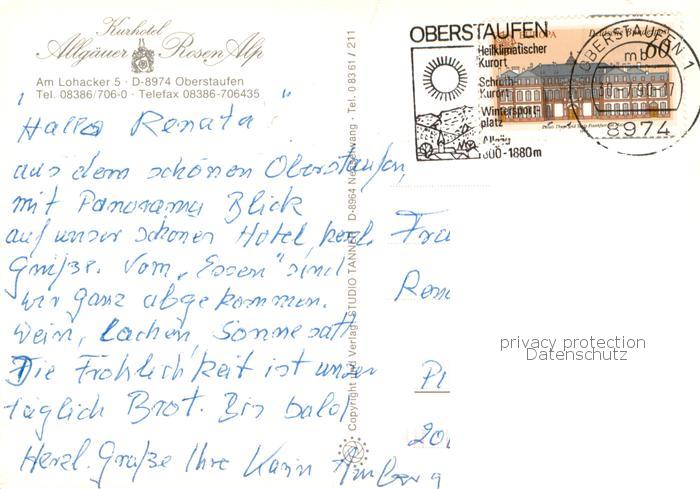 Kurhotel
Allgäuer Rosen Alp
Am Lohacker 5 · D-8974 Oberstaufen
Tel. 08386/706-0 · Telefax 08386-706435
"Hallo Renata"
aus dem schönen Oberstaufen,
mit Panorama Blick
auf unser schönes Hotel, herzl.
Grüße. Vom „Essen" sind
wir ganz abgekommen.
Wein, Lachen, Sonne satt
Die Fröhlichkeit ist unser
täglich Brot. Bis bald
Herzl. Grüße Ihre Karin
Copyright und Verlag: STUDIO TANNER D-8964 Nesselwang - Tel. 08361/211
OBERSTAUFEN
Heilklimatischer
Kurort
Schroth-
Kurort
Wintersport-
platz
Allgäu
800-1880m
EUROPA Deutsche Bundespost
60
OBERSTAUFEN 1
mb
8974
Fra
Ren
privacy protection
Datenschutz